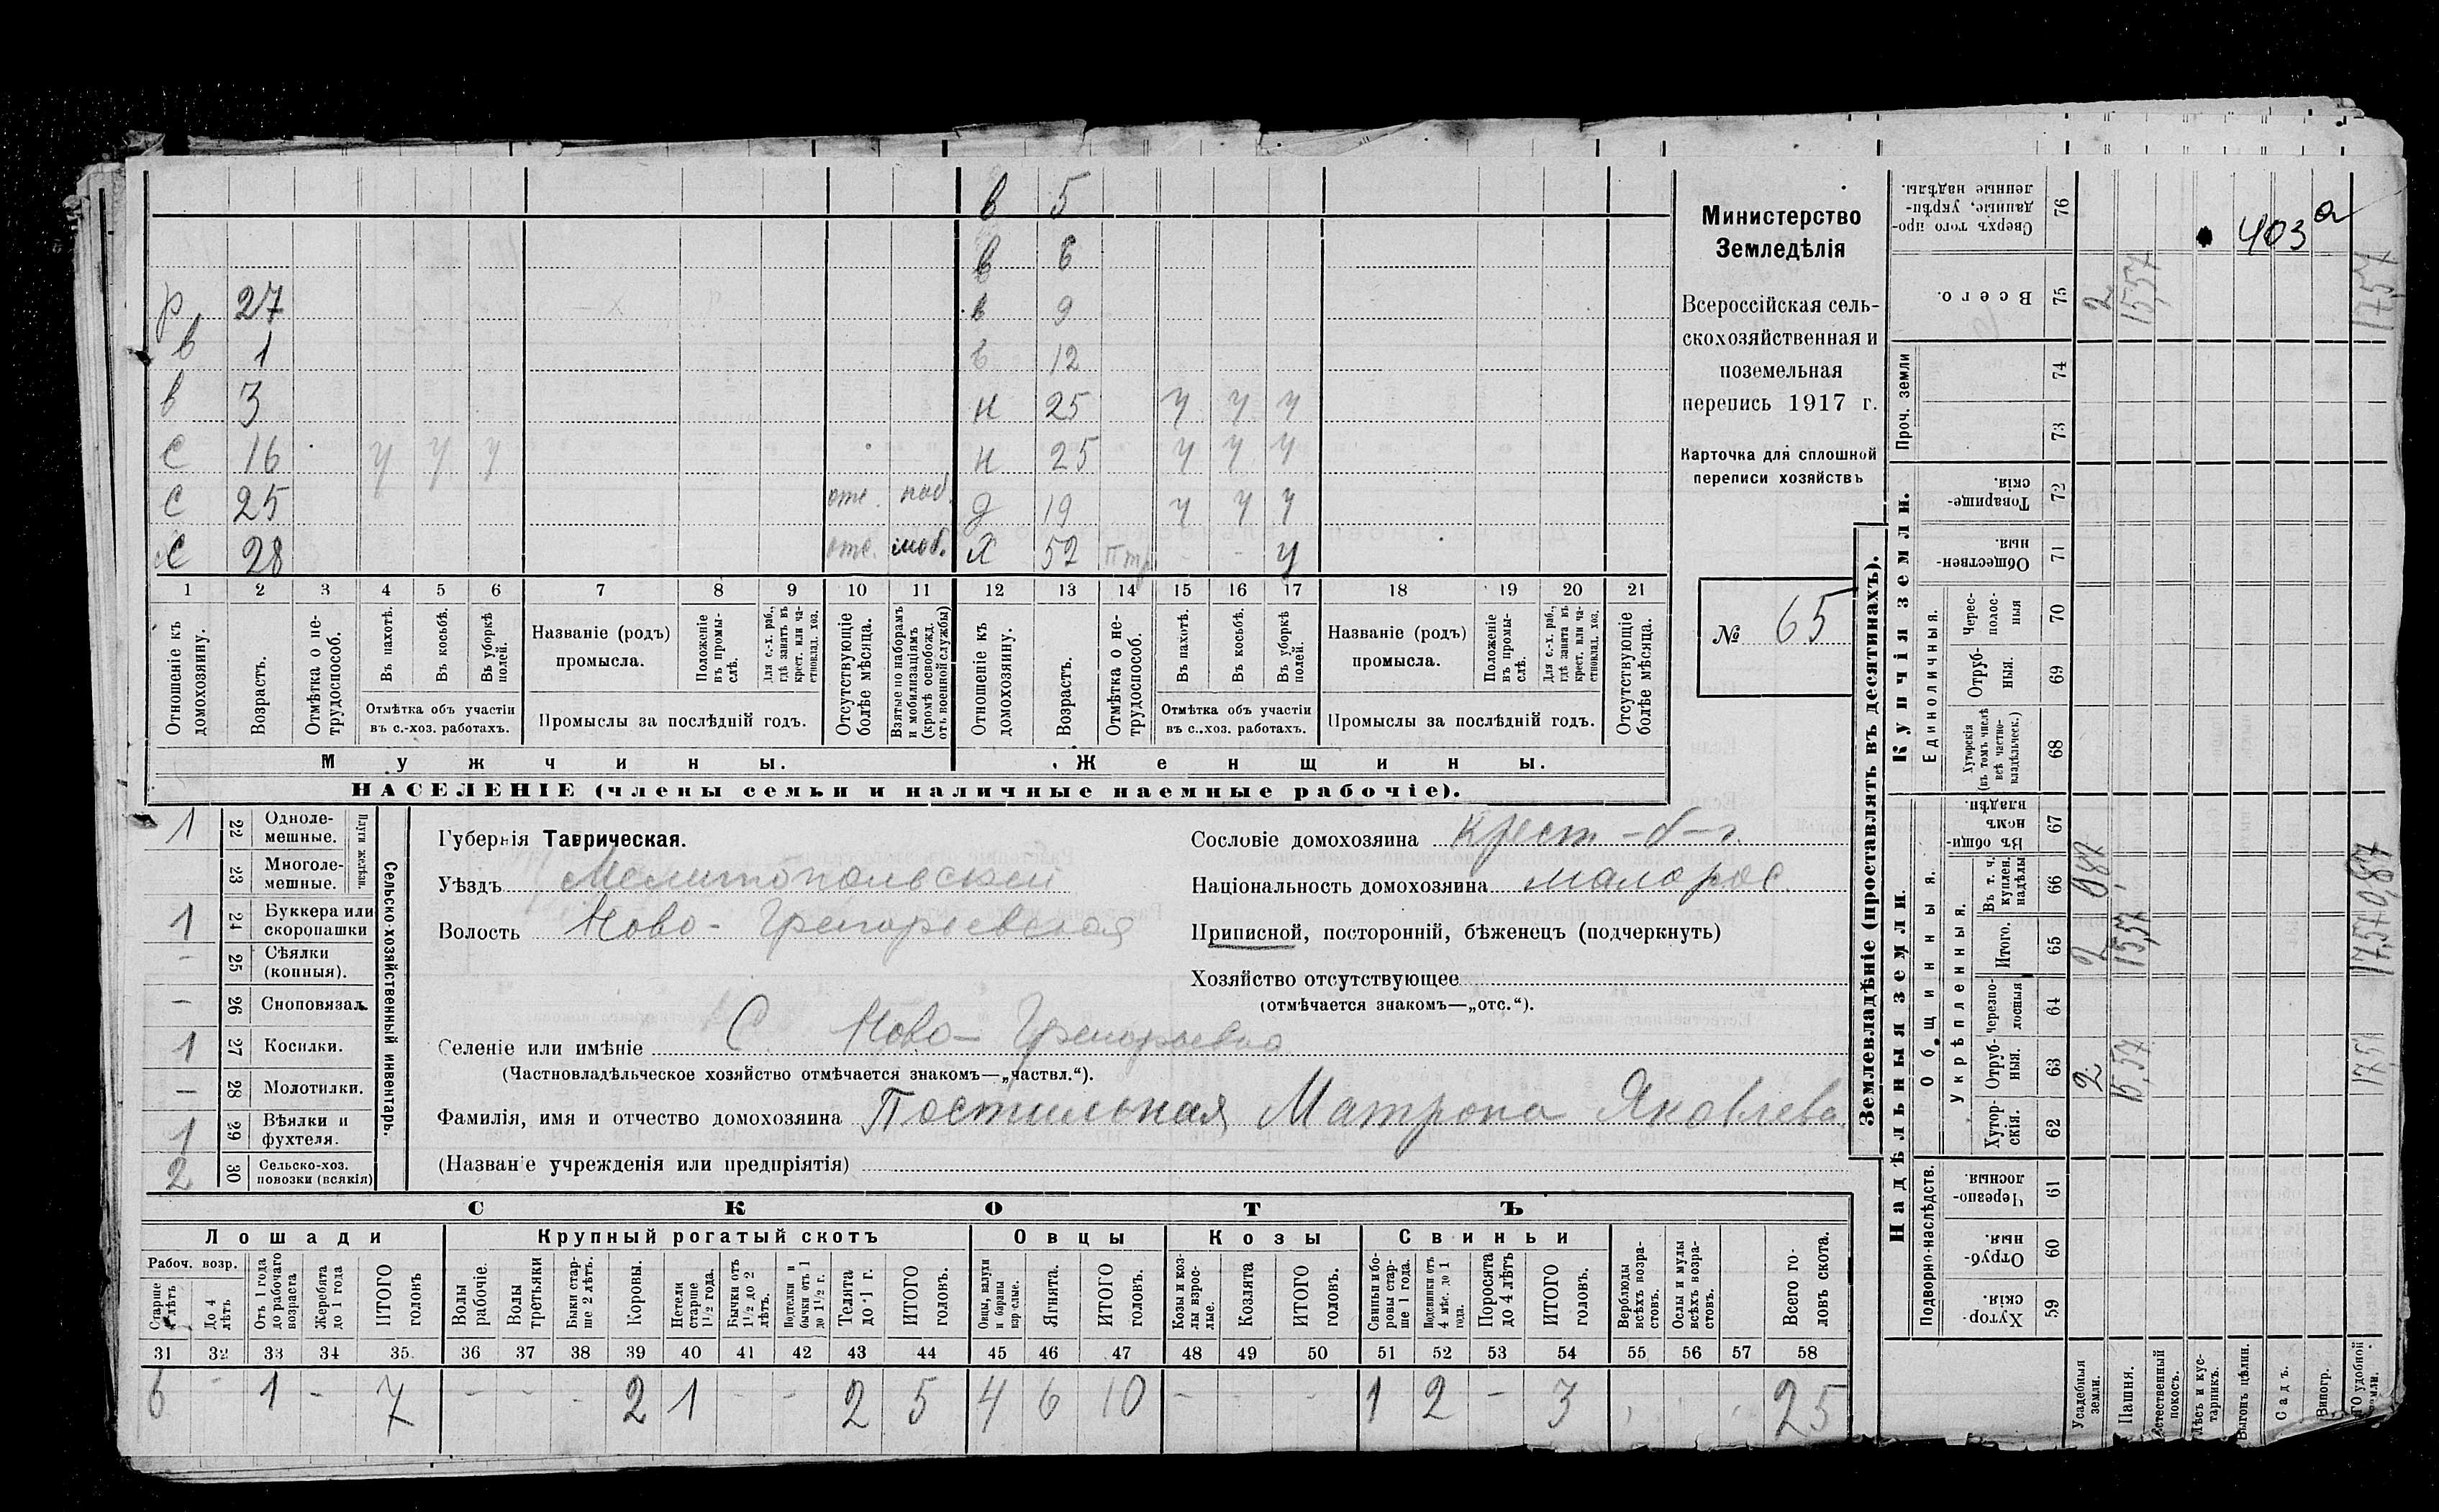 в 5
в 6
р 27 в 9
в 1 в 12
в 3 н 25 у у у
с 16 у у у н 25 у у у
с 25 отс. моб. д 19 у у у
с 28 отс. моб. х 52 у
1 2 3 4 5 6 7 8 9 10 11 12 13 14 15 16 17 18 19 20 21
Отношеніе къ домохозяину.
Возрастъ.
Отмѣтка о не-трудоспособ.
Въ пахотѣ.
Въ косьбѣ.
Въ уборкѣ полей.
Отмѣтка объ участіи въ с.-хоз. работахъ.
Названіе (родъ) промысла.
Положеніе въ промы-слѣ.
Для с.-х. раб., гдѣ занятъ въ крест. или ча-стновлад. хоз.
Промыслы за послѣдній годъ.
Отсутствующіе болѣе мѣсяца.
Взятые по наборамъ и мобилизаціямъ (кромѣ освобожд. отъ военной службы)
Отношеніе къ домохозяину.
Возрастъ.
Отмѣтка о не-трудоспособ.
Въ пахотѣ.
Въ косьбѣ.
Въ уборкѣ полей.
Отмѣтка объ участіи въ с.-хоз. работахъ.
Названіе (родъ) промысла.
Положеніе въ промы-слѣ.
Для с.-х. раб., гдѣ занята въ крест. или ча-стновлад. хоз.
Промыслы за послѣдній годъ.
Отсутствующіе болѣе мѣсяца.
Мужчины. Женщины.
НАСЕЛЕНІЕ (члены семьи и наличные наемные рабочіе).
Министерство
Земледѣлія
Всероссійская сель-
скохозяйственная и
поземельная
перепись 1917 г.
Карточка для сплошной
переписи хозяйствъ
№ 65
1 22 Одноле-мешные.
23 Многоле-мешные.
Плуги желѣзн.
1 24 Буккера или скоропашки
- 25 Сѣялки (конныя).
- 26 Сноповязал.
1 27 Косилки.
- 28 Молотилки.
1 29 Вѣялки и фухтеля.
2 30 Сельско-хоз. повозки (всякія)
Сельско-хозяйственный инвентарь.
Губернія Таврическая.
Уѣздъ Мелитопольскій
Волость Ново-Григорьевская
Сословіе домохозяина Крест-б-г.
Національность домохозяина малорос.
Приписной, посторонній, бѣженецъ (подчеркнуть)
Хозяйство отсутствующее
(отмѣчается знакомъ—„отс.“).
Селеніе или имѣніе С. Ново-Григорьевка
(Частновладѣльческое хозяйство отмѣчается знакомъ—„частвл.“).
Фамилія, имя и отчество домохозяина Постильная Матрона Яковлева
(Названіе учрежденія или предпріятія)
СКОТЪ
Лошади Крупный рогатый скотъ Овцы Козы Свиньи
Рабоч. возр.
Старше 4 лѣтъ
До 4 лѣтъ
Отъ 1 года до рабочаго возраста
Жеребята до 1 года
ИТОГО головъ
Волы рабочіе.
Волы третьяки
Быки стар-ше 2 лѣтъ.
Коровы.
Нетели старше 1½ года.
Бычки отъ 1½ до 2 лѣтъ.
Подтелки и бычки отъ 1 до 1½ г.
Телята до 1 г.
ИТОГО головъ.
Овцы, валухи и бараны взрослые.
Ягнята.
ИТОГО головъ.
Козы и коз-лы взрос-лые.
Козлята
ИТОГО головъ.
Свиньи и бо-ровы стар-ше 1 года.
Подсвинки отъ 4 мѣс. до 1 года.
Поросята до 4 лѣтъ
ИТОГО головъ.
Верблюды всѣхъ возра-стовъ.
Ослы и мулы всѣхъ возра-стовъ.
Всего го-ловъ скота.
31 32 33 34 35 36 37 38 39 40 41 42 43 44 45 46 47 48 49 50 51 52 53 54 55 56 57 58
6 - 1 - 7 - - - 2 1 - - 2 5 4 6 10 - - - 1 2 - 3 25
403 а
Землевладѣніе (проставлять въ десятинахъ).
Надѣльныя земли. Купчія земли. Проч. земли
Подворно-наслѣдств.
Общинныя.
Укрѣпленныя.
Единоличныя.
Хутор-скія. 59
Отруб-ныя. 60
Черезпо-лосныя. 61
Хутор-скія. 62
Отруб-ныя. 63 2 15,57 17,57
Черезпо-лосныя 64
Итого. 65 2 15,57 17,57
Въ т. ч. куплен. надѣлы 66 0,87 0,87
Въ общи-номъ владѣн. 67
Хуторскія (въ томъ числѣ всѣ частно-владѣльческ.) 68
Отруб-ныя. 69
Черес-полос-ныя 70
Обществен-ныя. 71
Товарище-скія. 72
73
74
Всего. 75 2 15,57 17,57
Сверхъ того про-данные, укрѣп-ленные надѣлы. 76
Усадебныя земли.
Пашня.
Естественный покосъ.
Лѣсъ и кус-тарникъ.
Выгонъ цѣлин.
Садъ.
Виногр.